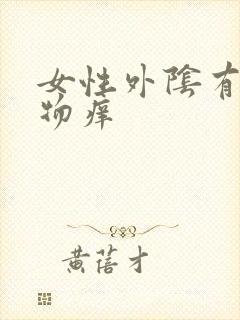 女性外陰有
物痒
黄蓓才